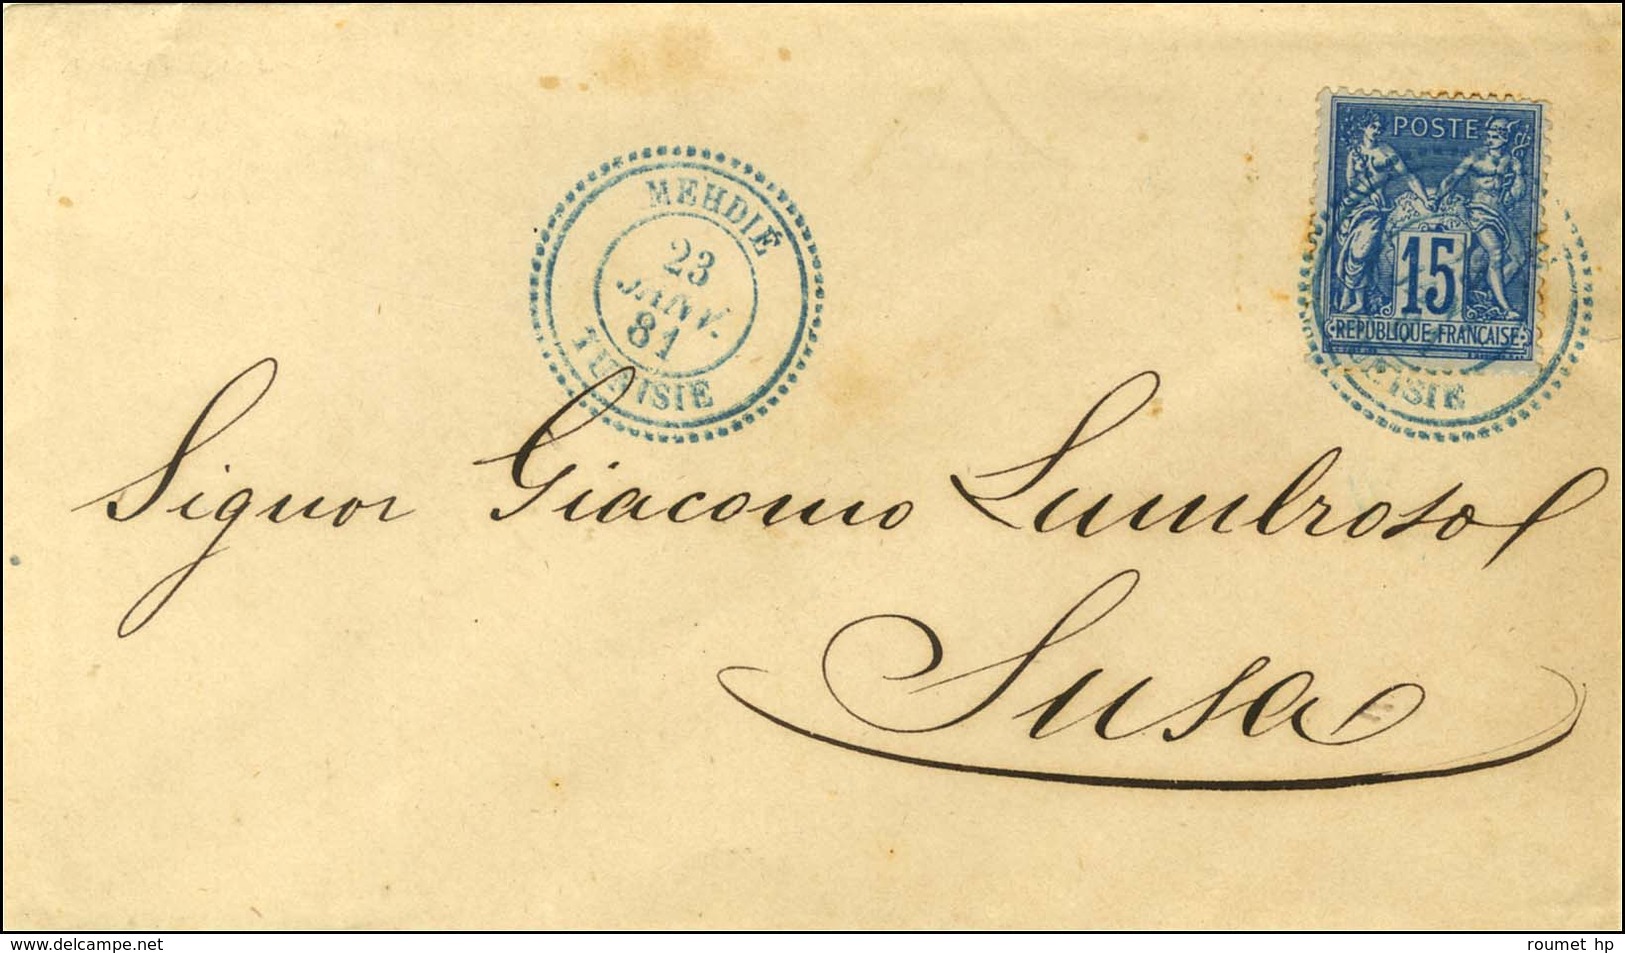 POSTE
15
RÉPUBLIQUE FRANÇAISE
MEHDIÉ
23
JANV.
81
TUNISIE
TUNISIE
Signor Giacomo Lumbroso
Susa
www.delcampe.net
roumet hp